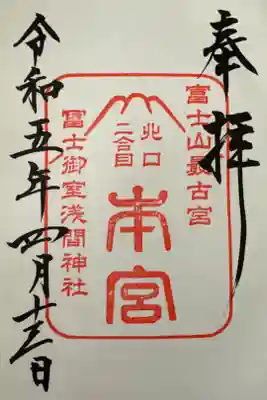 奉拝
富士山最古宮
北口
二合目
本宮
冨士御室浅間神社
令和五年四月十三日